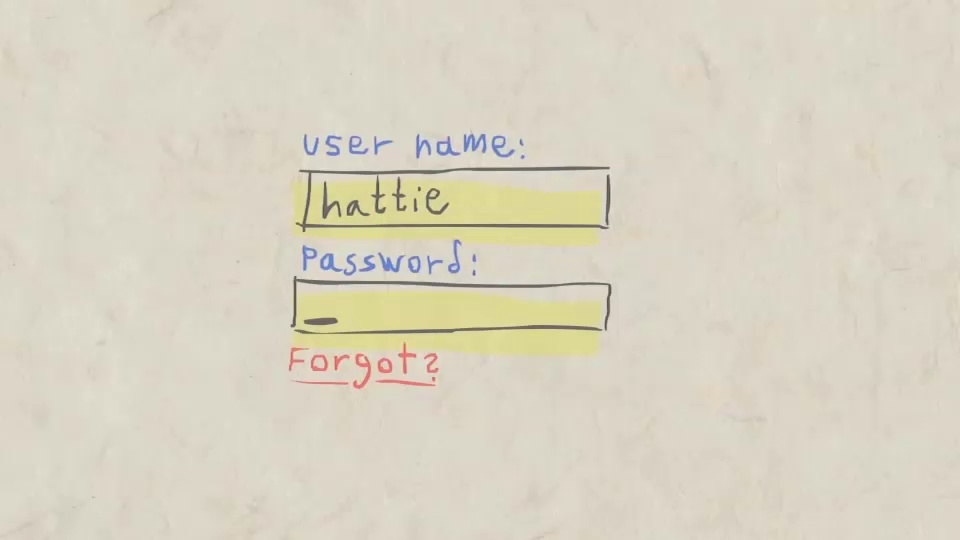 user name:
hattie
Password:
Forgot?